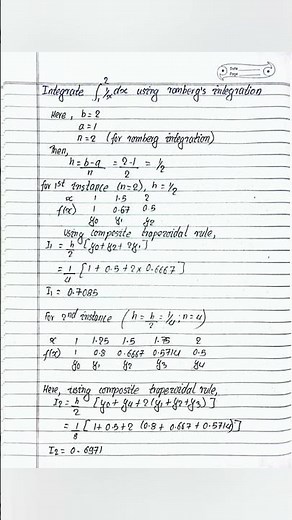 Date
Page
Integrate ∫₁² 1/x dx using romberg's integration
Here, b = 2
a = 1
n = 2 (for romberg integration)
Then,
h = b-a/n = 2-1/2 = 1/2
for 1st instance (n=2), h = 1/2
x 1 1.5 2
f(x) 1 0.67 0.5
y0 y1 y2
Using composite trapezoidal rule,
I1 = h/2 [y0+y2+2y1]
= 1/4 [1+0.5+2×0.6667]
I1 = 0.7085
For 2nd instance (h = h/2 = 1/4; n=4)
x 1 1.25 1.5 1.75 2
f(x) 1 0.8 0.6667 0.5714 0.5
y0 y1 y2 y3 y4
Here, using composite trapezoidal rule,
I2 = h/2 [y0+y4+2(y1+y2+y3)]
= 1/8 [1+0.5+2 (0.8+0.667+0.5714)]
I2 = 0.6971